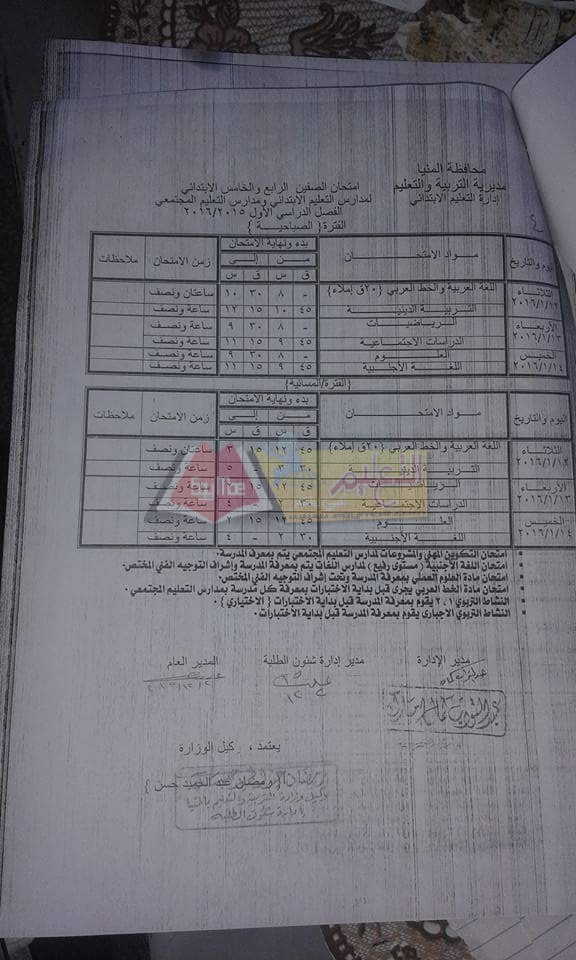 محافظة المنيا
مديرية التربية والتعليم
إدارة التعليم الابتدائي
امتحان الصفين الرابع والخامس الابتدائي
لمدارس التعليم الابتدائي ومدارس التعليم المجتمعي
الفصل الدراسي الأول ٢٠١٦/٢٠١٥
الفترة { الصباحية }
اليوم والتاريخ مواد الامتحان بدء ونهاية الامتحان زمن الامتحان ملاحظات
من إلى
ق س ق س
الثلاثاء ٢٠١٦/١/١٢ اللغة العربية والخط العربي {٢٠ق إملاء} - ٨ ٣٠ ١٠ ساعتان ونصف
التربية الدينية ٤٥ ١٠ ١٥ ١٢ ساعة ونصف
الأربعاء ٢٠١٦/١/١٣ الرياضيات - ٨ ٣٠ ٩ ساعة ونصف
الدراسات الاجتماعية ٤٥ ٩ ١٥ ١١ ساعة ونصف
الخميس ٢٠١٦/١/١٤ العلوم - ٨ ٣٠ ٩ ساعة ونصف
اللغة الأجنبية ٤٥ ٩ ١٥ ١١ ساعة ونصف
{الفترة/المسائية}
اليوم والتاريخ مواد الامتحان بدء ونهاية الامتحان زمن الامتحان ملاحظات
من إلى
ق س ق س
الثلاثاء ٢٠١٦/١/١٢ اللغة العربية والخط العربي {٢٠ق إملاء} ٤٥ ١٢ ١٥ ٣ ساعتان ونصف
التربية الدينية ٣٠ ٥ ساعة ونصف
الأربعاء ٢٠١٦/١/١٣ الرياضيات ٤٥ ١٢ ١٥ ونصف
الدراسات الاجتماعية ٣٠ ٤ ساعة ونصف
الخميس ٢٠١٦/١/١٤ العلوم ٤٥ ١٢ ١٥ ٢ ساعة ونصف
اللغة الأجنبية ٣٠ ٢ - ٤ ساعة ونصف
• امتحان التكوين المهني والمشروعات لمدارس التعليم المجتمعي يتم بمعرفة المدرسة.
• امتحان اللغة الأجنبية ( مستوى رفيع ) لمدارس اللغات يتم بمعرفة المدرسة وإشراف التوجيه الفني المختص.
• امتحان مادة العلوم العملي بمعرفة المدرسة وتحت إشراف التوجيه الفني المختص.
• امتحان مادة الخط العربي يجرى قبل بداية الاختبارات بمعرفة كل مدرسة بمدارس التعليم المجتمعي.
• النشاط التربوي ١ ، ٢ يقوم بمعرفة المدرسة قبل بداية الاختبارات { الاختياري }.
• النشاط التربوي الاجبارى يقوم بمعرفة المدرسة قبل بداية الاختبارات.
مدير الإدارة مدير إدارة شئون الطلبة المدير العام
يعتمد ، وكيل الوزارة
( رمضان عبد الحميد حسن )
وكيل وزارة التربية والتعليم بالمنيا
إدارة شئون الطلبة
التعليم